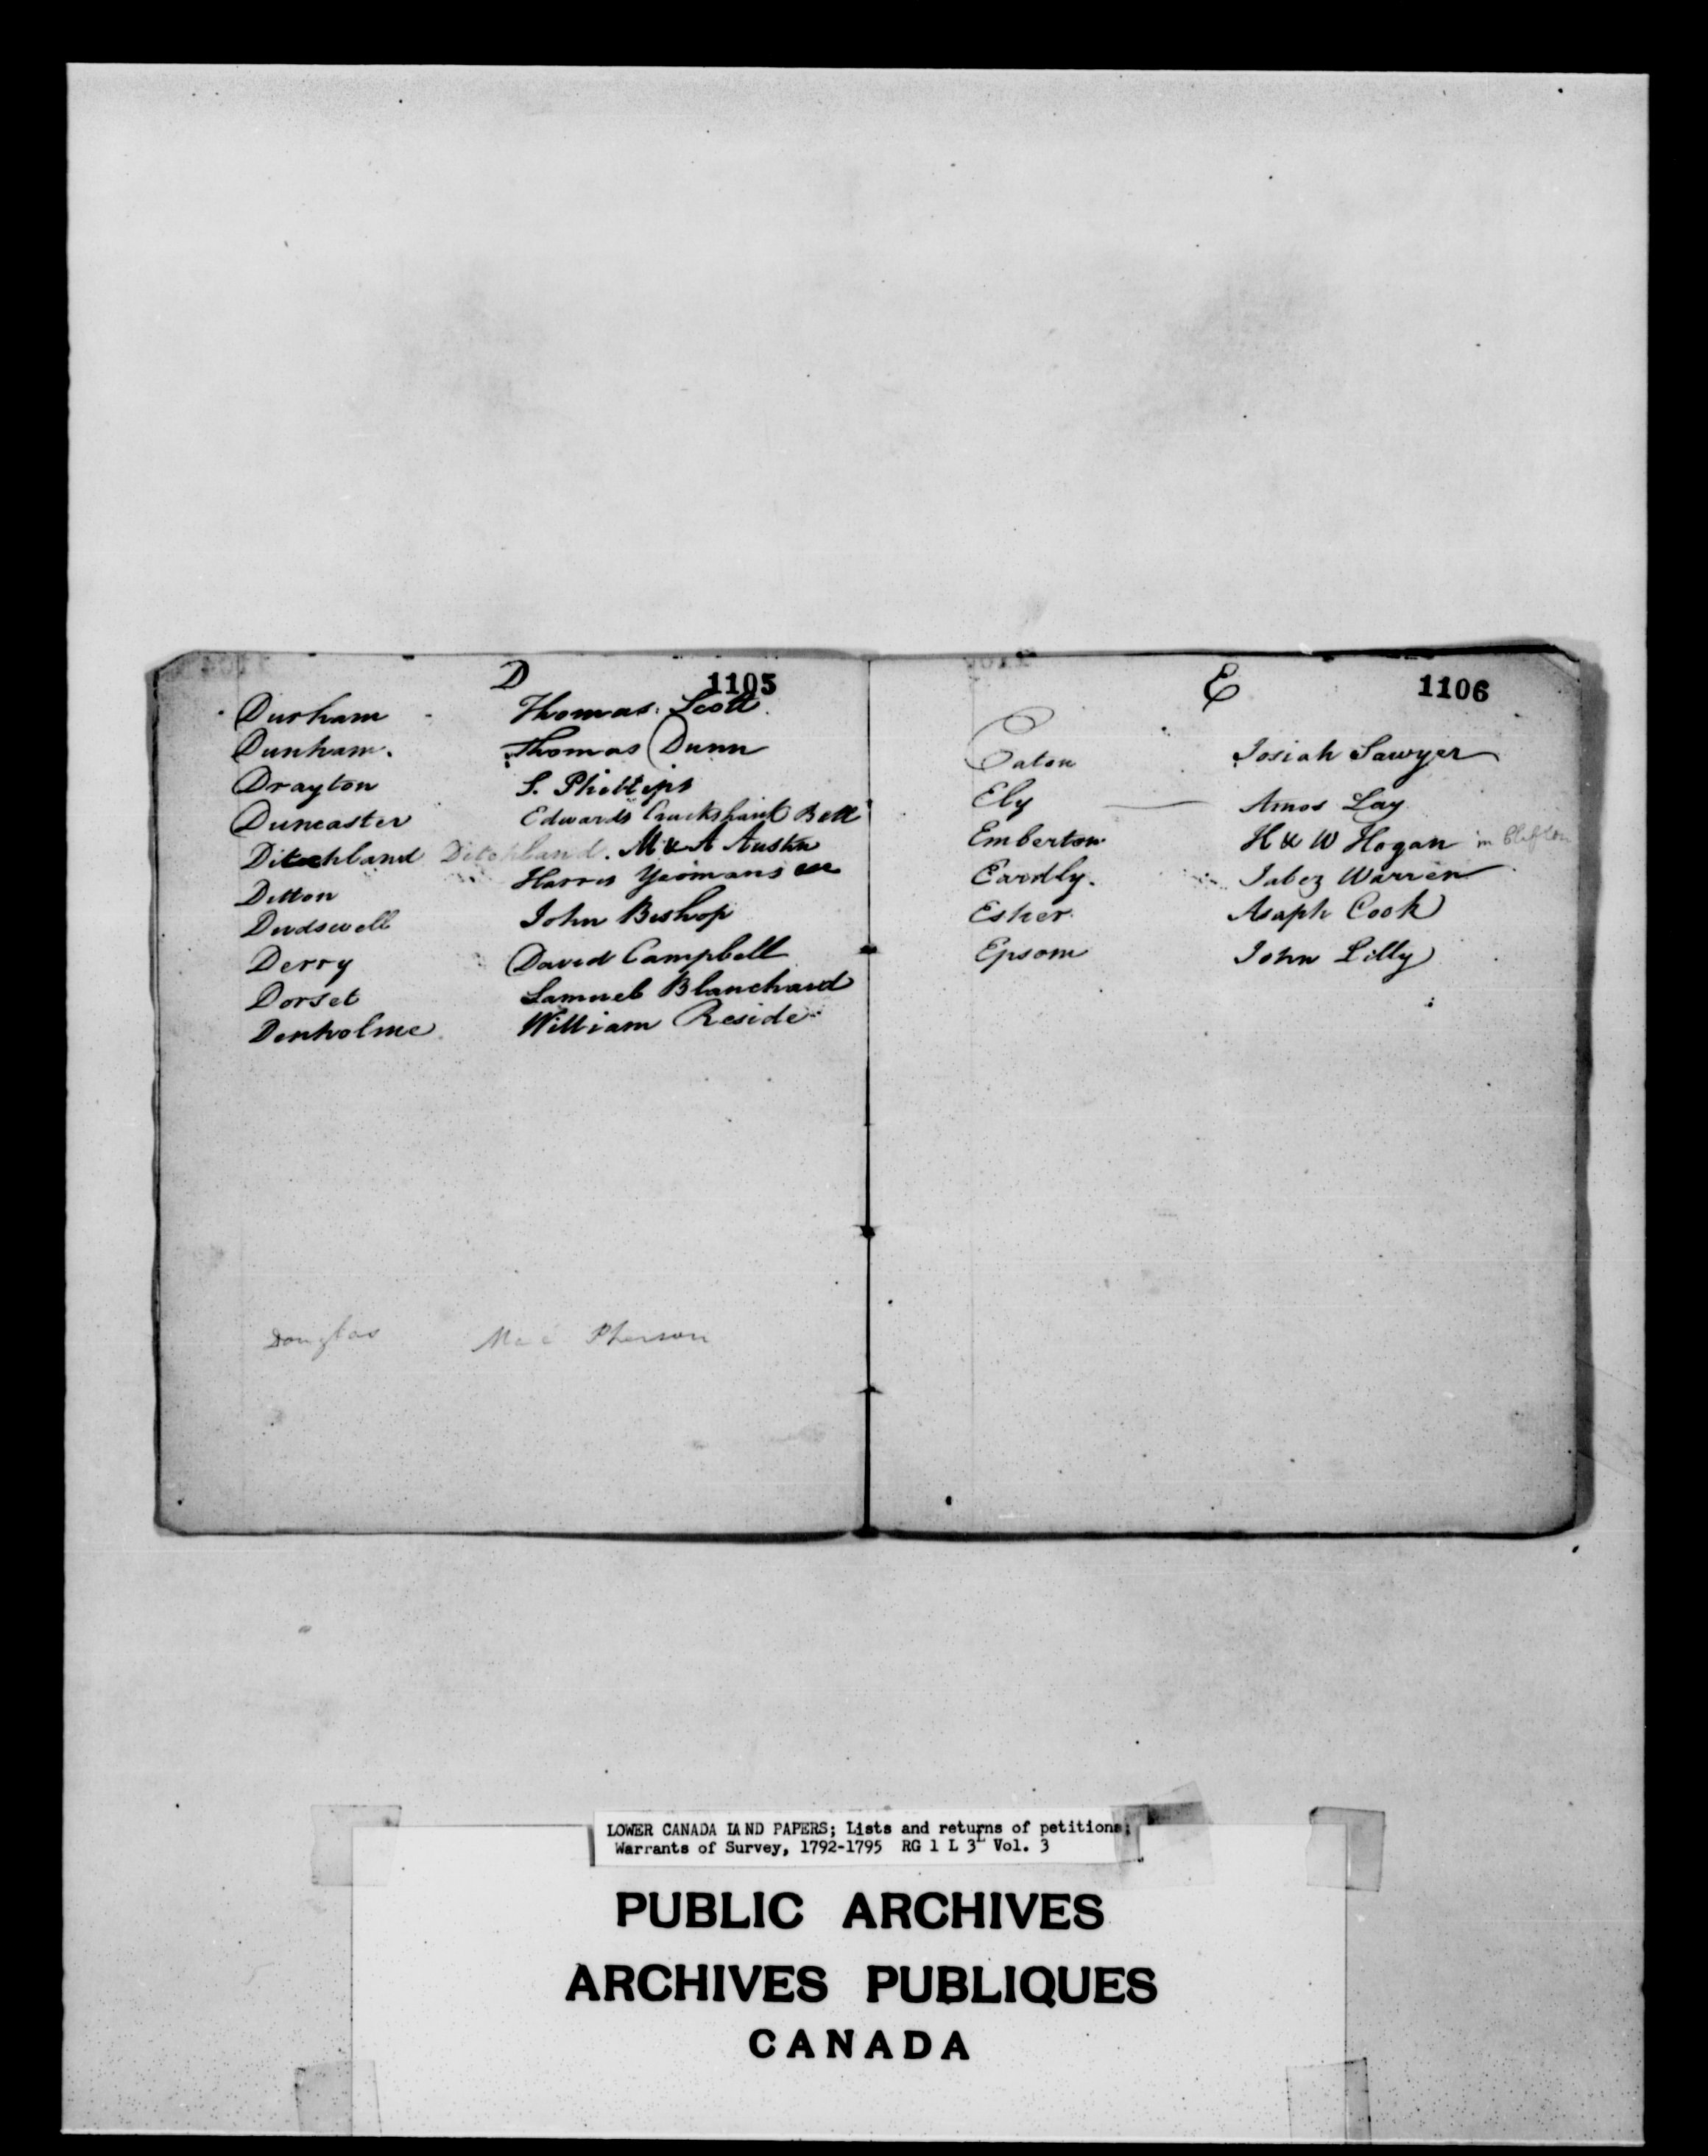 D 1105
Durham Thomas Scott
Dunham. Thomas Dunn
Drayton S. Phillips
Duncaster Edwards Cruckshank Bell
Ditchland Ditchland. M & A Austin
Ditton Harris Yeomans
Dudswell John Bishop
Derry David Campbell
Dorset Samuel Blanchard
Denholme William Reside
Douglas Mac Pherson
E 1106
Eaton Josiah Sawyer
Ely Amos Lay
Emberton H & W Hogan in Clifton
Eardly. Jabez Warren
Esher Asaph Cook
Epsom John Lilly
LOWER CANADA LAND PAPERS; Lists and returns of petitions;
Warrants of Survey, 1792-1795 RG 1 L 3L Vol. 3
PUBLIC ARCHIVES
ARCHIVES PUBLIQUES
CANADA